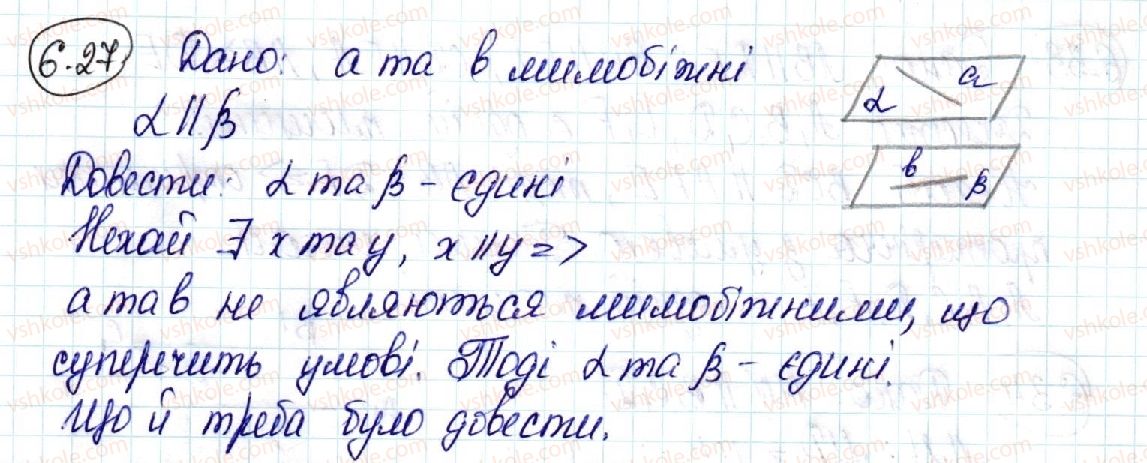 6.27 Дано: а та в мимобіжні
α∥β
Довести: α та β - єдині
Нехай ∃ х та у, х∥у =>
а та в не являються мимобіжними, що
суперечить умові. Тоді α та β - єдині.
Що й треба було довести.
а
α
в
β
vshkole.com